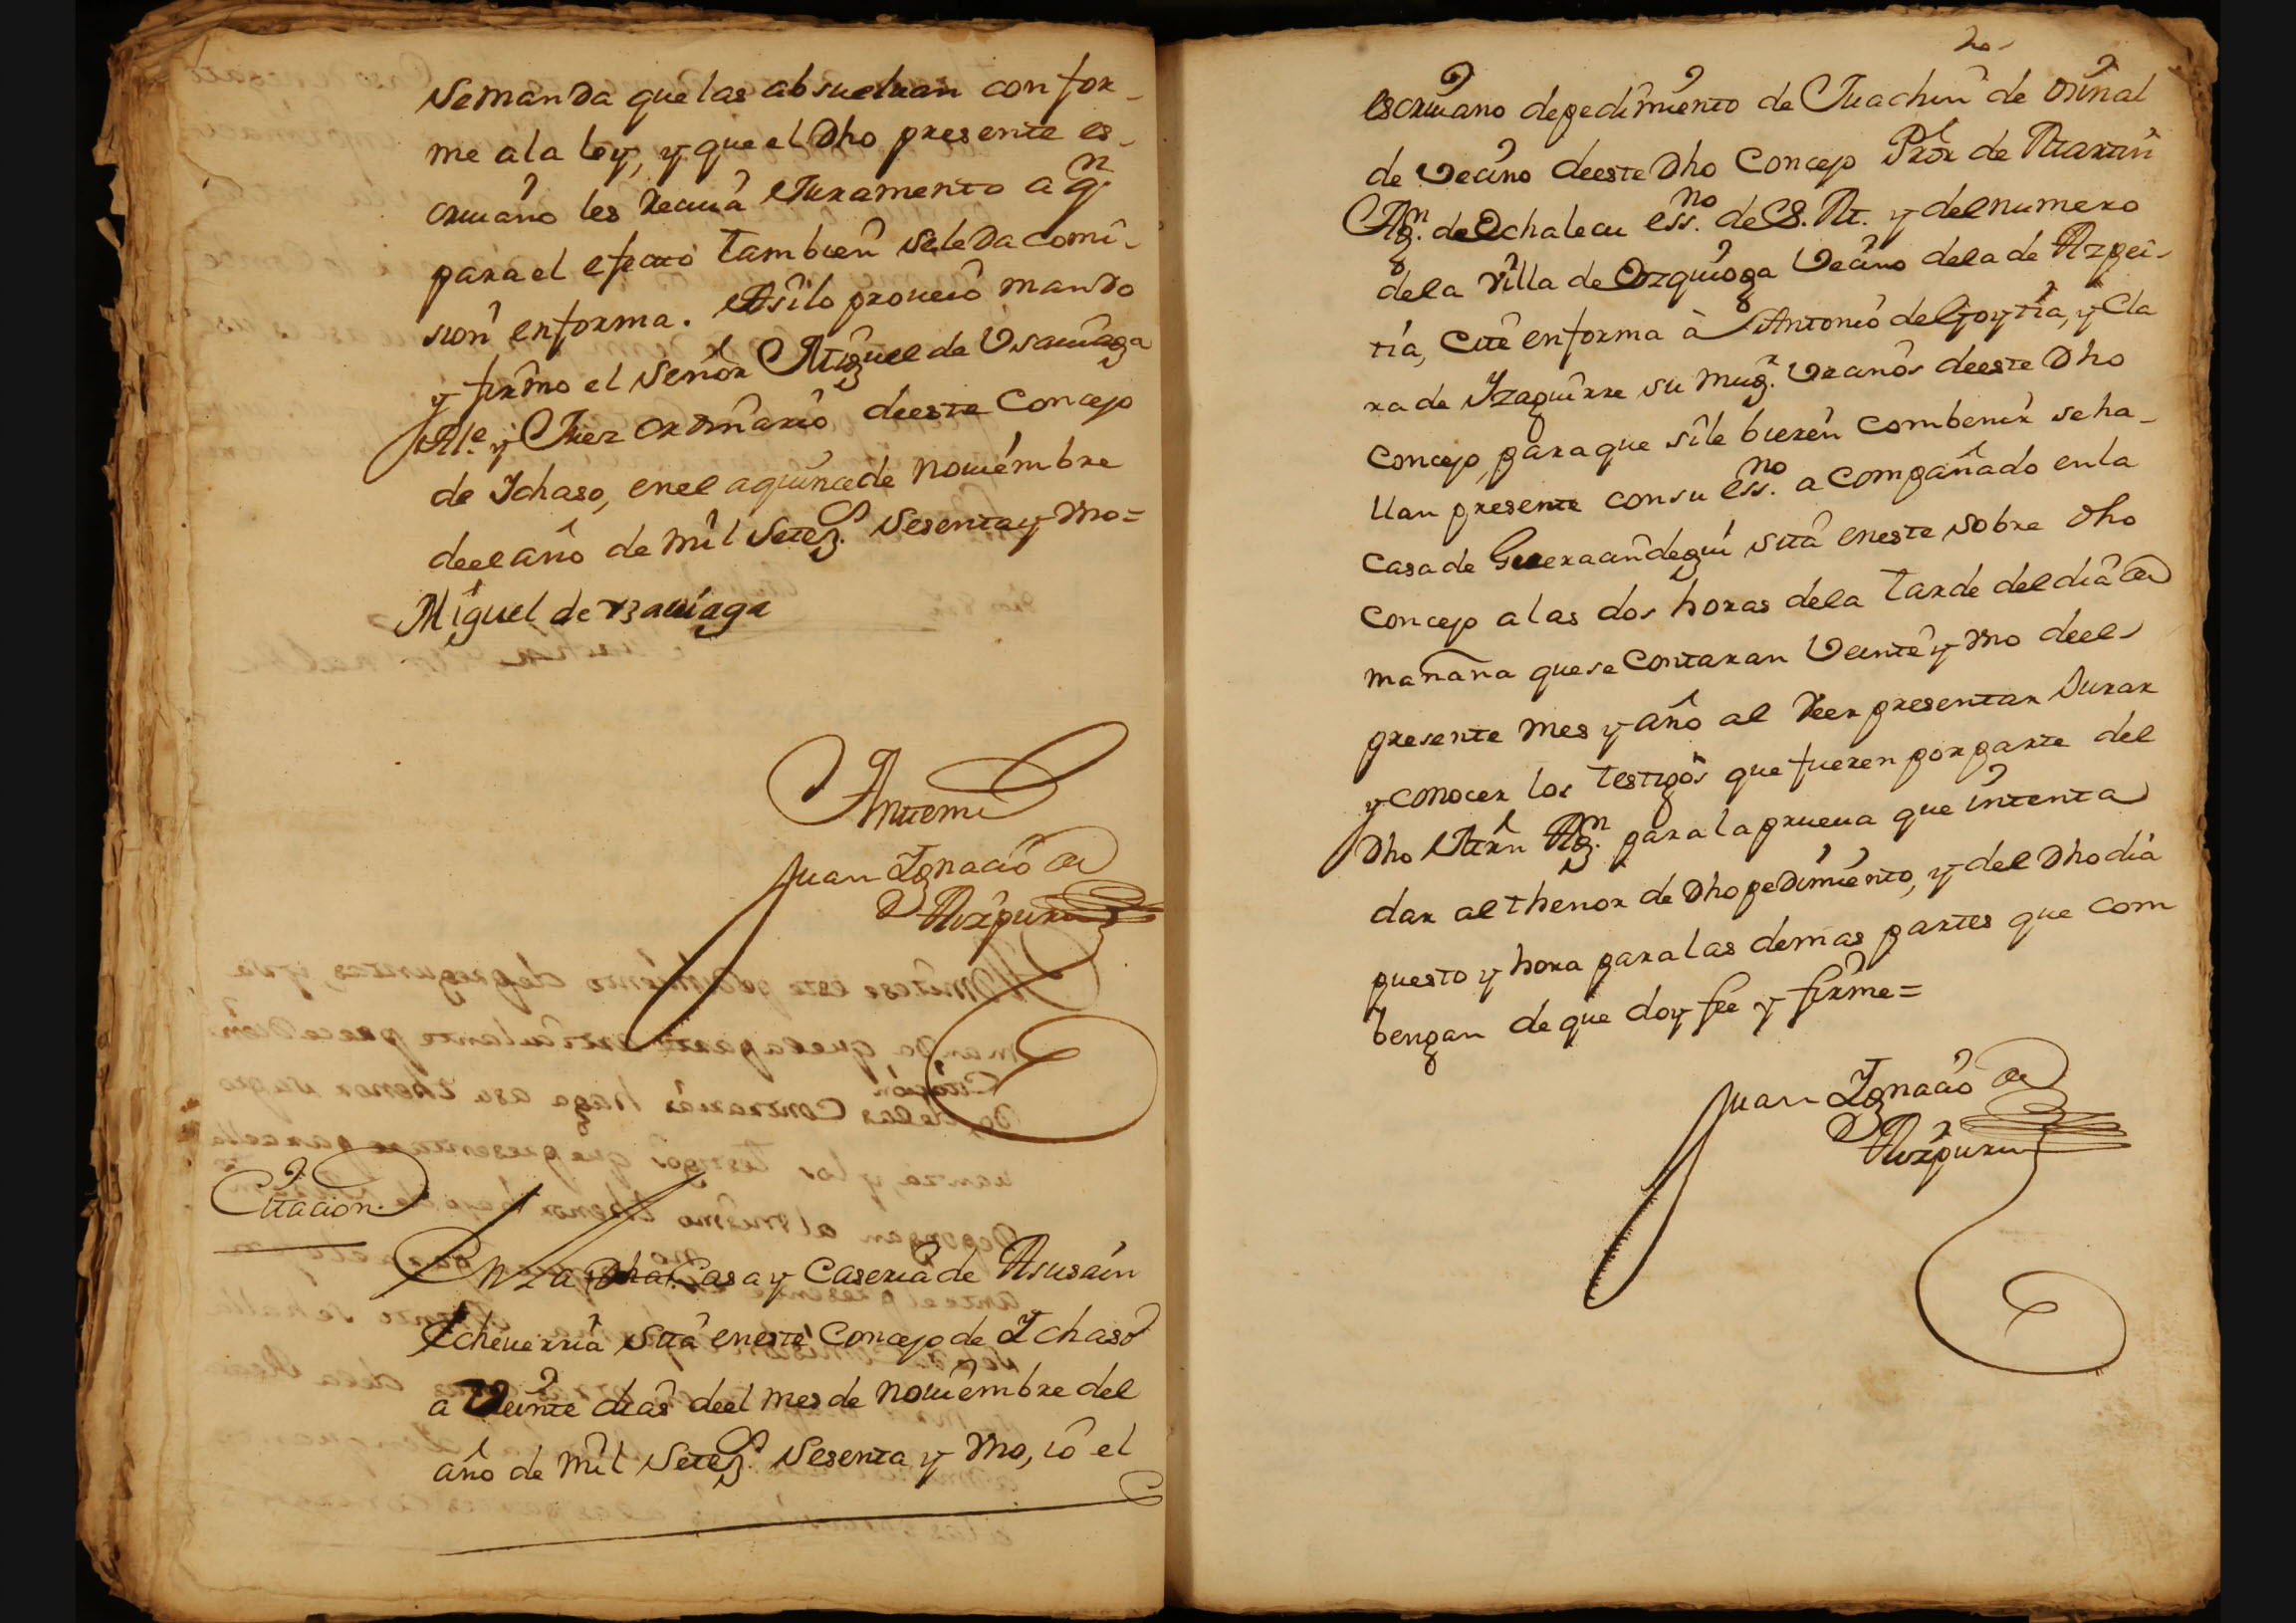 Semanda que las absueluan confor-
me a la ley, y que el Dho presente es-
criuano les Reciua Juramento a qn.
para el efecto tambien sele Da comi-
sion en forma. Asilo proueio mando
y firmo el Señor Miguel de Vsauiaga
Alle. y Juez ordinario deeste Concejo
de Ichaso, enel a quince de Nouiembre
deel año de mil Setezs. Sesenta y Vno=
Miguel de Vsauiaga
Antemi
Juan Ignacio de
Aizpuru
Citacion
En la Dha Casa y Caseria de Asusain
Echeuerria sita eneste Concejo de Ichaso
a Veinte dias deel mes de Nouiembre del
año de mil Setezs. Sesenta y Vno, io el
20
escriuano de pedimiento de Juachin de
de Vecino deeste Dho Concejo Pror de Martin
Agn. de Ochalecu essno. de S. M. y del numero
dela Villa de Ezquioga Vecino dela de Azpei-
tia, Cite en forma à Antonio de Goytia, y Cla
ra de Yzaguirre su mugr. Vecinos deeste Dho
Concejo, para que sile bieren combenir se ha-
llan presente con su essno. acompañado en la
Casa de sita eneste sobre dho
Concejo a las dos horas dela tarde del dia de
mañana que se Contaran Veinte y Vno deel
presente mes y año al Veer presentar Jurar
y conocer los testigos que fueren por parte del
Dho Mrn Agn. para la prueua que intenta
dar al thenor de Dho pedimiento, y del Dho dia
puesto y hora para las demas partes que com
bengan de que doy fee y firme=
Juan Ignacio de
Aizpuru